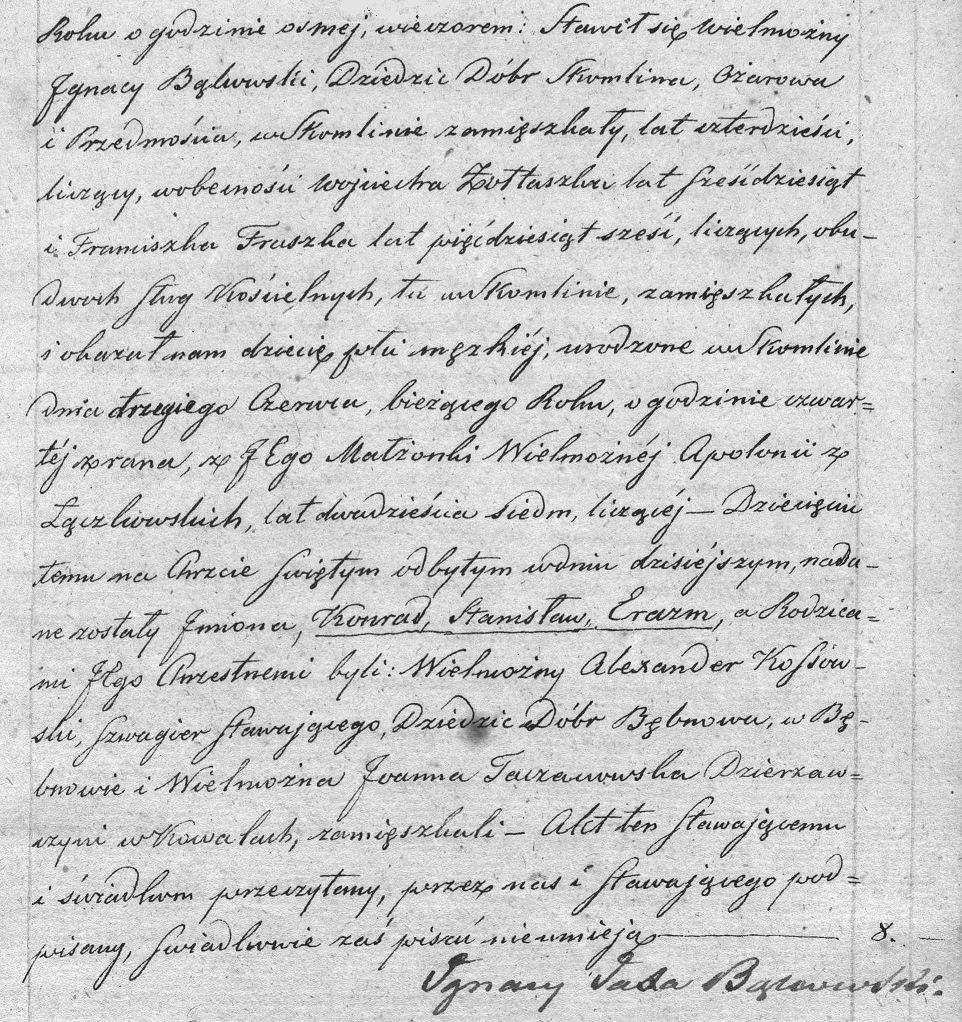 Roku o godzinie osmej, wieczorem: Stawił się Wielmożny
Jgnacy Bąkowski, Dziedzic Dóbr Skomlina, Ożarowa
i Przedmościa, w Skomlinie zamięszkały, lat czterdzieści,
liczący, wobecności Wojciecha lat sześćdziesiąt
i Franciszka Fraszka lat pięćdziesiąt sześć, liczących, obu-
dwoch sług Kościelnych, tu w Skomlinie, zamięszkałych,
i okazał nam dziecię płci męzkiéj, urodzone w Skomlinie
dnia drugiego Czerwca, bieżącego Roku, o godzinie czwar=
téj z rana, z JEgo Małżonki Wielmożnéj Apolonii z
Łączkowskich, lat dwadzieścia siedm, liczącéj — Dziecięciu
temu na Chrzcie Swiętym odbytym wdniu dzisiéjszym, nada-
ne zostały Jmiona, Konrad, Stanisław, Erazm, a Rodzica=
mi JEgo Chrzestnemi byli: Wielmożny Alexander Kossow-
ski, Szwagier Stawającego, Dziedzic Dóbr Bębnowa, w Bę-
bnowie i Wielmożna Joanna Taczanowska Dzierzaw=
czyni w Kowalach, zamięszkali — Akt ten Stawającemu
i świadkom przeczytany, przez nas i Stawającego pod=
pisany, Swiadkowie zaś pisać nieumieją — 8. —
Ignacy Bąkowski.